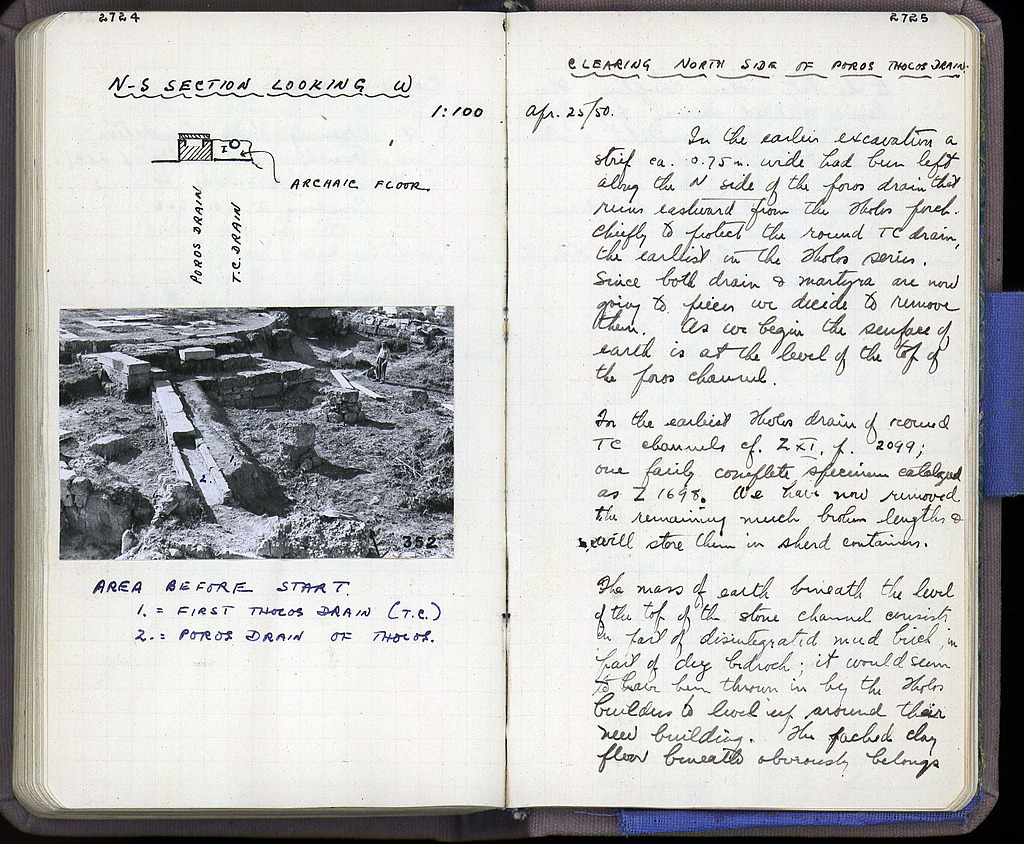 2724
N-S SECTION LOOKING W
1:100
I
ARCHAIC FLOOR
POROS DRAIN
T.C. DRAIN
1
2
352
AREA BEFORE START.
1. = FIRST THOLOS DRAIN (T.C.)
2. = POROS DRAIN OF THOLOS.
2725
CLEARING NORTH SIDE OF POROS THOLOS DRAIN.
Apr. 25/50.
In the earlier excavation a
strip ca. 0.75 m. wide had been left
along the N side of the poros drain that
runs eastward from the Tholos porch.
chiefly to protect the round TC drain,
the earliest in the Tholos series.
Since both drain & martyra are now
going to pieces we decide to remove
them. As we begin the surface of
earth is at the level of the top of
the poros channel.
For the earliest Tholos drain of round
TC channels cf. Z XI, p. 2099;
one fairly complete specimen catalogued
as Z 1698. We have now removed
the remaining much broken lengths &
will store them in sherd containers.
The mass of earth beneath the level
of the top of the stone channel consists
in part of disintegrated mud brick, in
part of dug bedrock; it would seem
to have been thrown in by the Tholos
builders to level up around their
new building. The packed clay
floor beneath obviously belongs